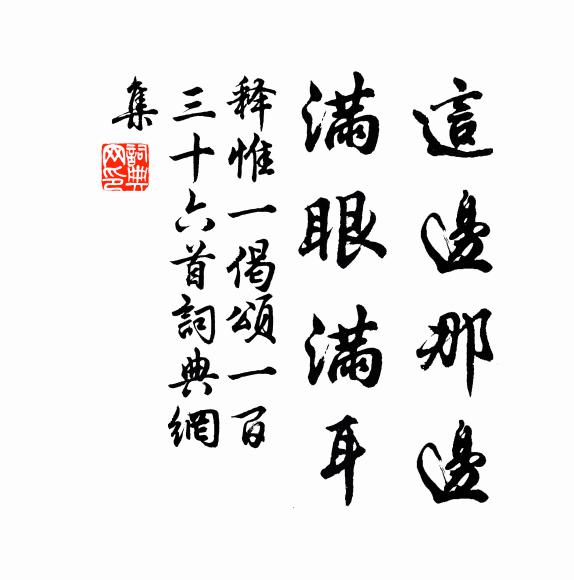 這邊那邊
滿眼滿耳
释惟一偈頌一百
三十六首詞典網
集
詞典
网印